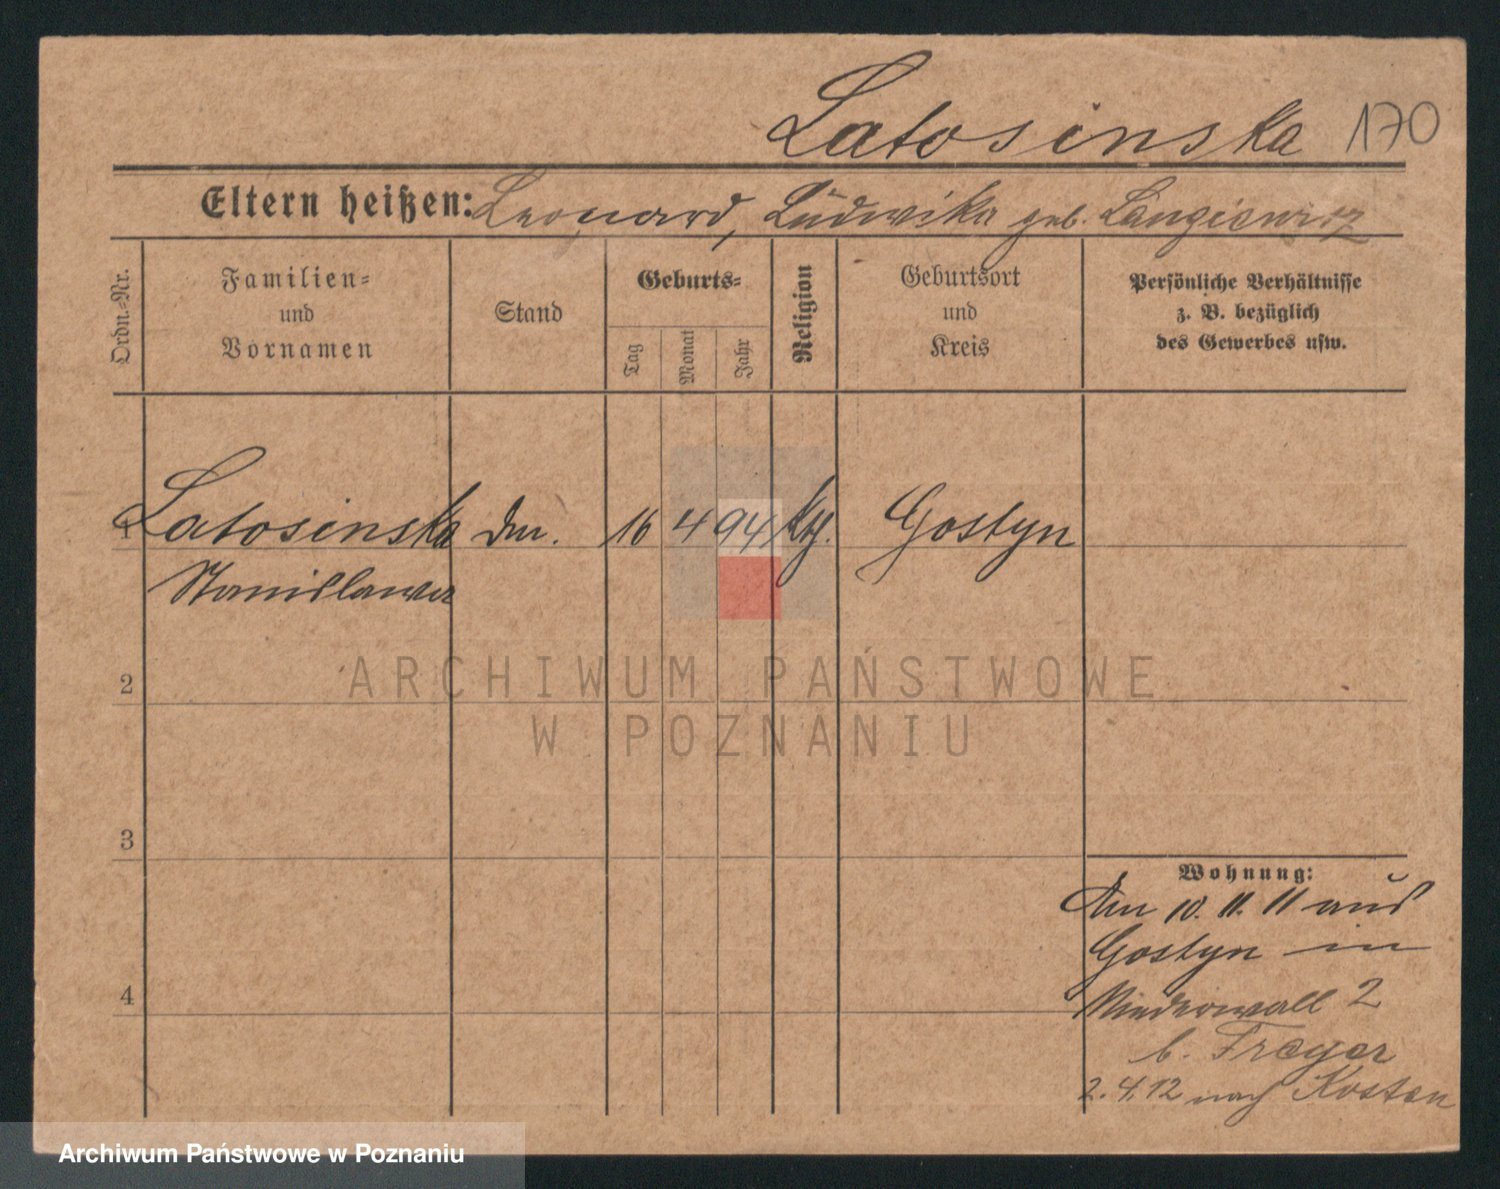 Latosinska 170
Eltern heißen: Leonard, Ludwika geb. Langiewicz
Ordn.-Nr.
Familien-
und
Vornamen
Stand
Geburts-
Tag
Monat
Jahr
Religion
Geburtsort
und
Kreis
Persönliche Verhältnisse
z. B. bezüglich
des Gewerbes usw.
1 Latosinska 16 4 94 kth. Gostyn
Stanislawa
2
3
4
Wohnung:
Am 10. 11. 11 aus
Gostyn in
Niederwall 2
b. Freyer
2. 4. 12 nach Kosten
ARCHIWUM PAŃSTWOWE
W POZNANIU
Archiwum Państwowe w Poznaniu